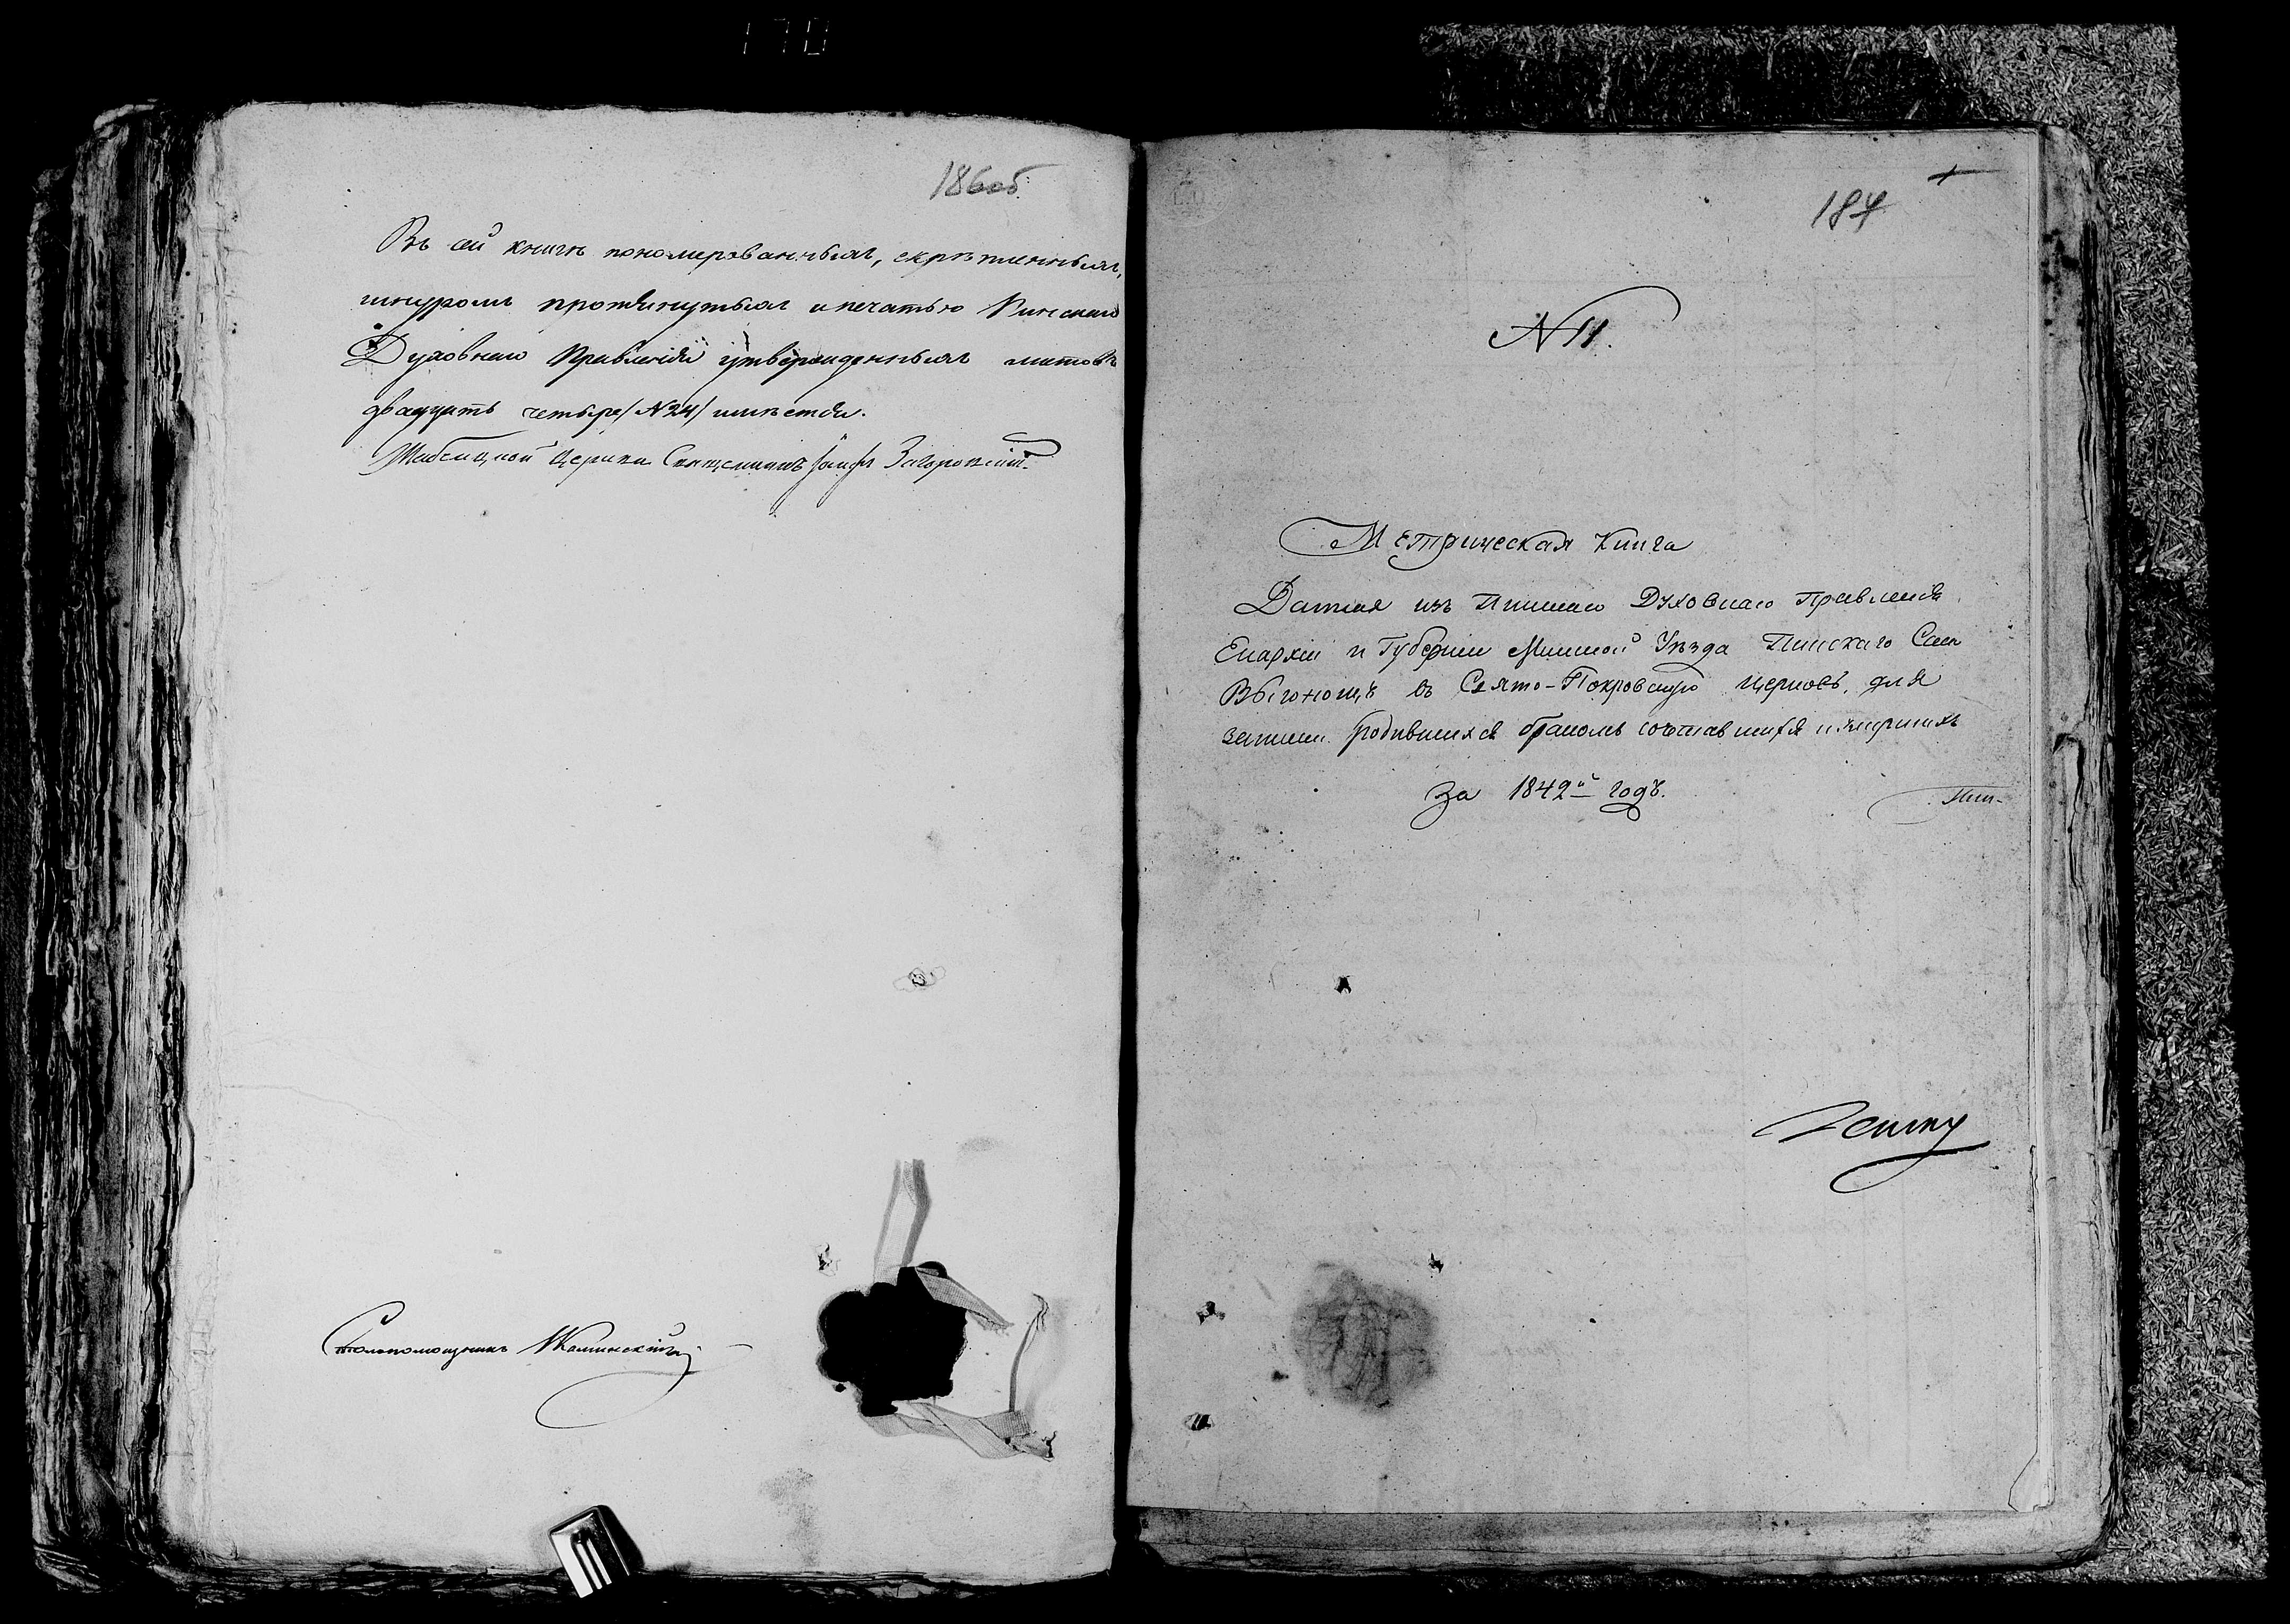 170
186об.
Въ сей книгѣ пономерованныхъ, скрѣпленныхъ,
шнуромъ протянутыхъ и печатью Пинскаго
Духовнаго Правленія утвержденныхъ листовъ
двадцать четыре /N 24/ имѣется.
Церкви Священникъ Загоровскій.
Столопомощникъ
187
N 11.
Метрическая Книга
Данная изъ Пинскаго Духовнаго Правленія
Епархіи и Губерніи Минской Уѣзда Пинскаго Села
Выгонощъ въ Свято-Покровскую Церковь, для
записи родившихся бракомъ сочетавшихся и умершихъ
За 1842й годъ.